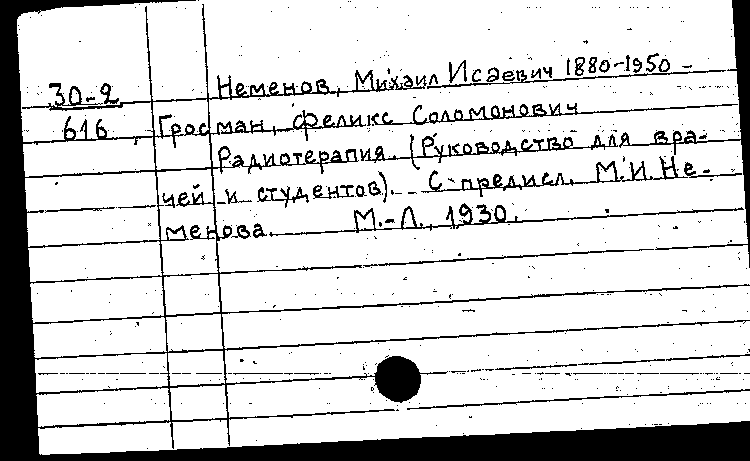 Неменов, Михаил Исаевич 1880-1950 -
30-2
616
Гросман, Феликс Соломонович
Радиотерапия. (Руководство для вра-
чей и студентов). С предисл. М.И. Не-
менова. М.-Л., 1930.